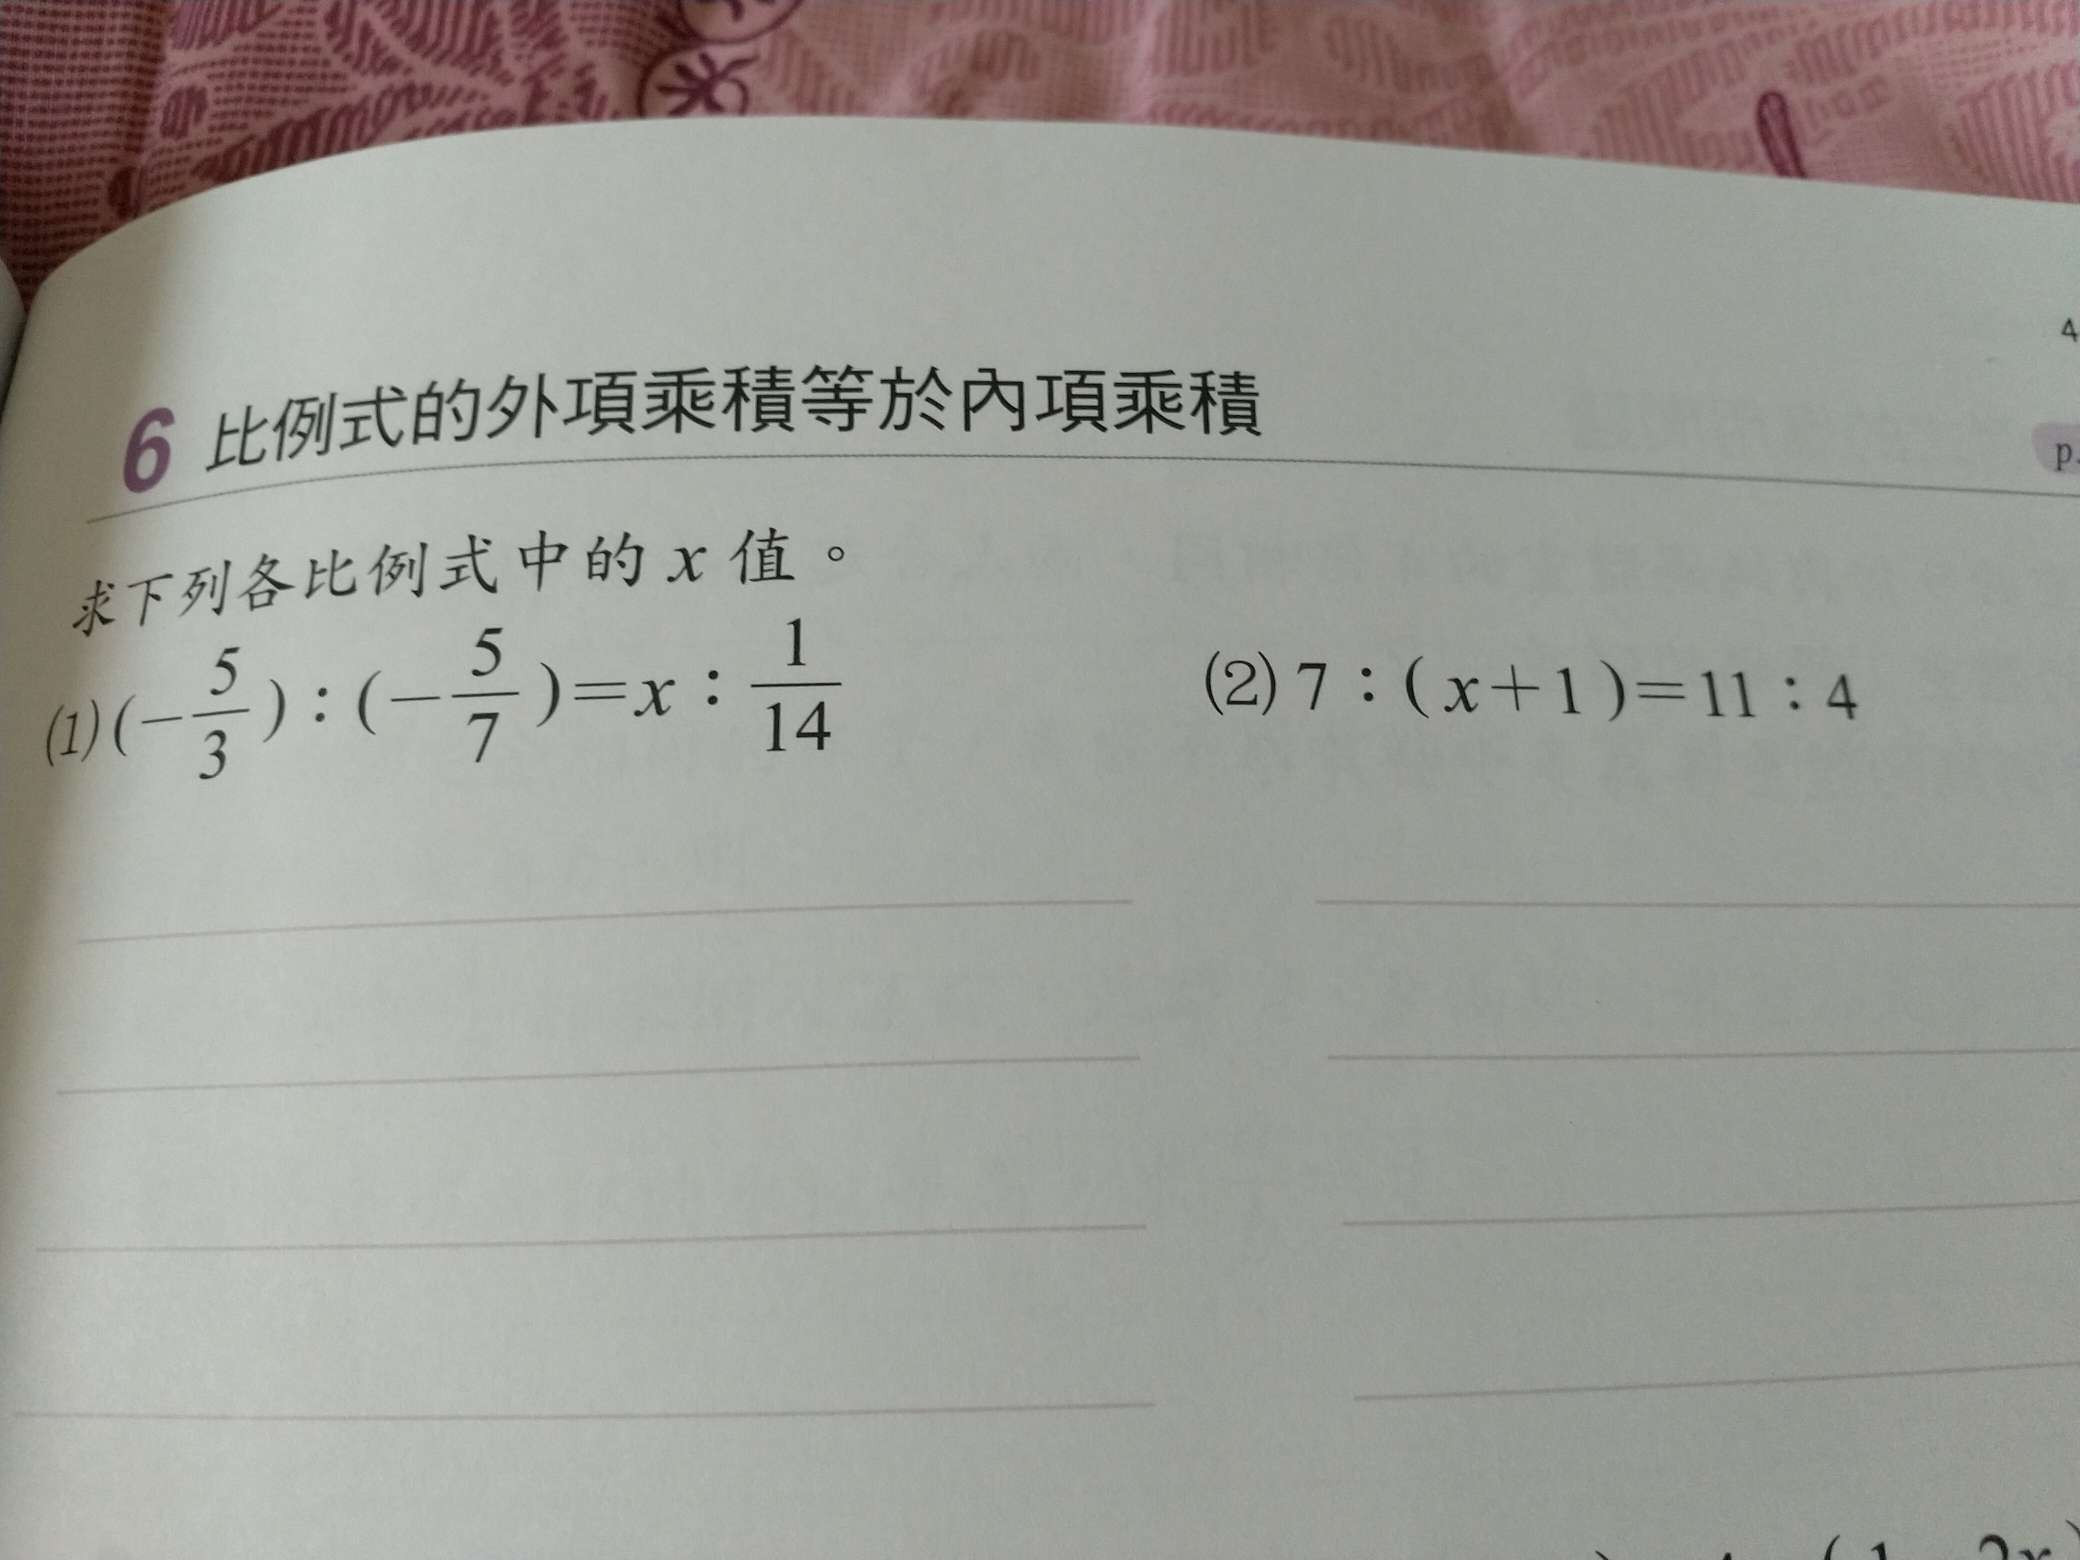 4
6 比例式的外項乘積等於內項乘積
p.
求下列各比例式中的 x 值。
(1)(-5/3):(-5/7)=x:1/14
(2) 7:(x+1)=11:4